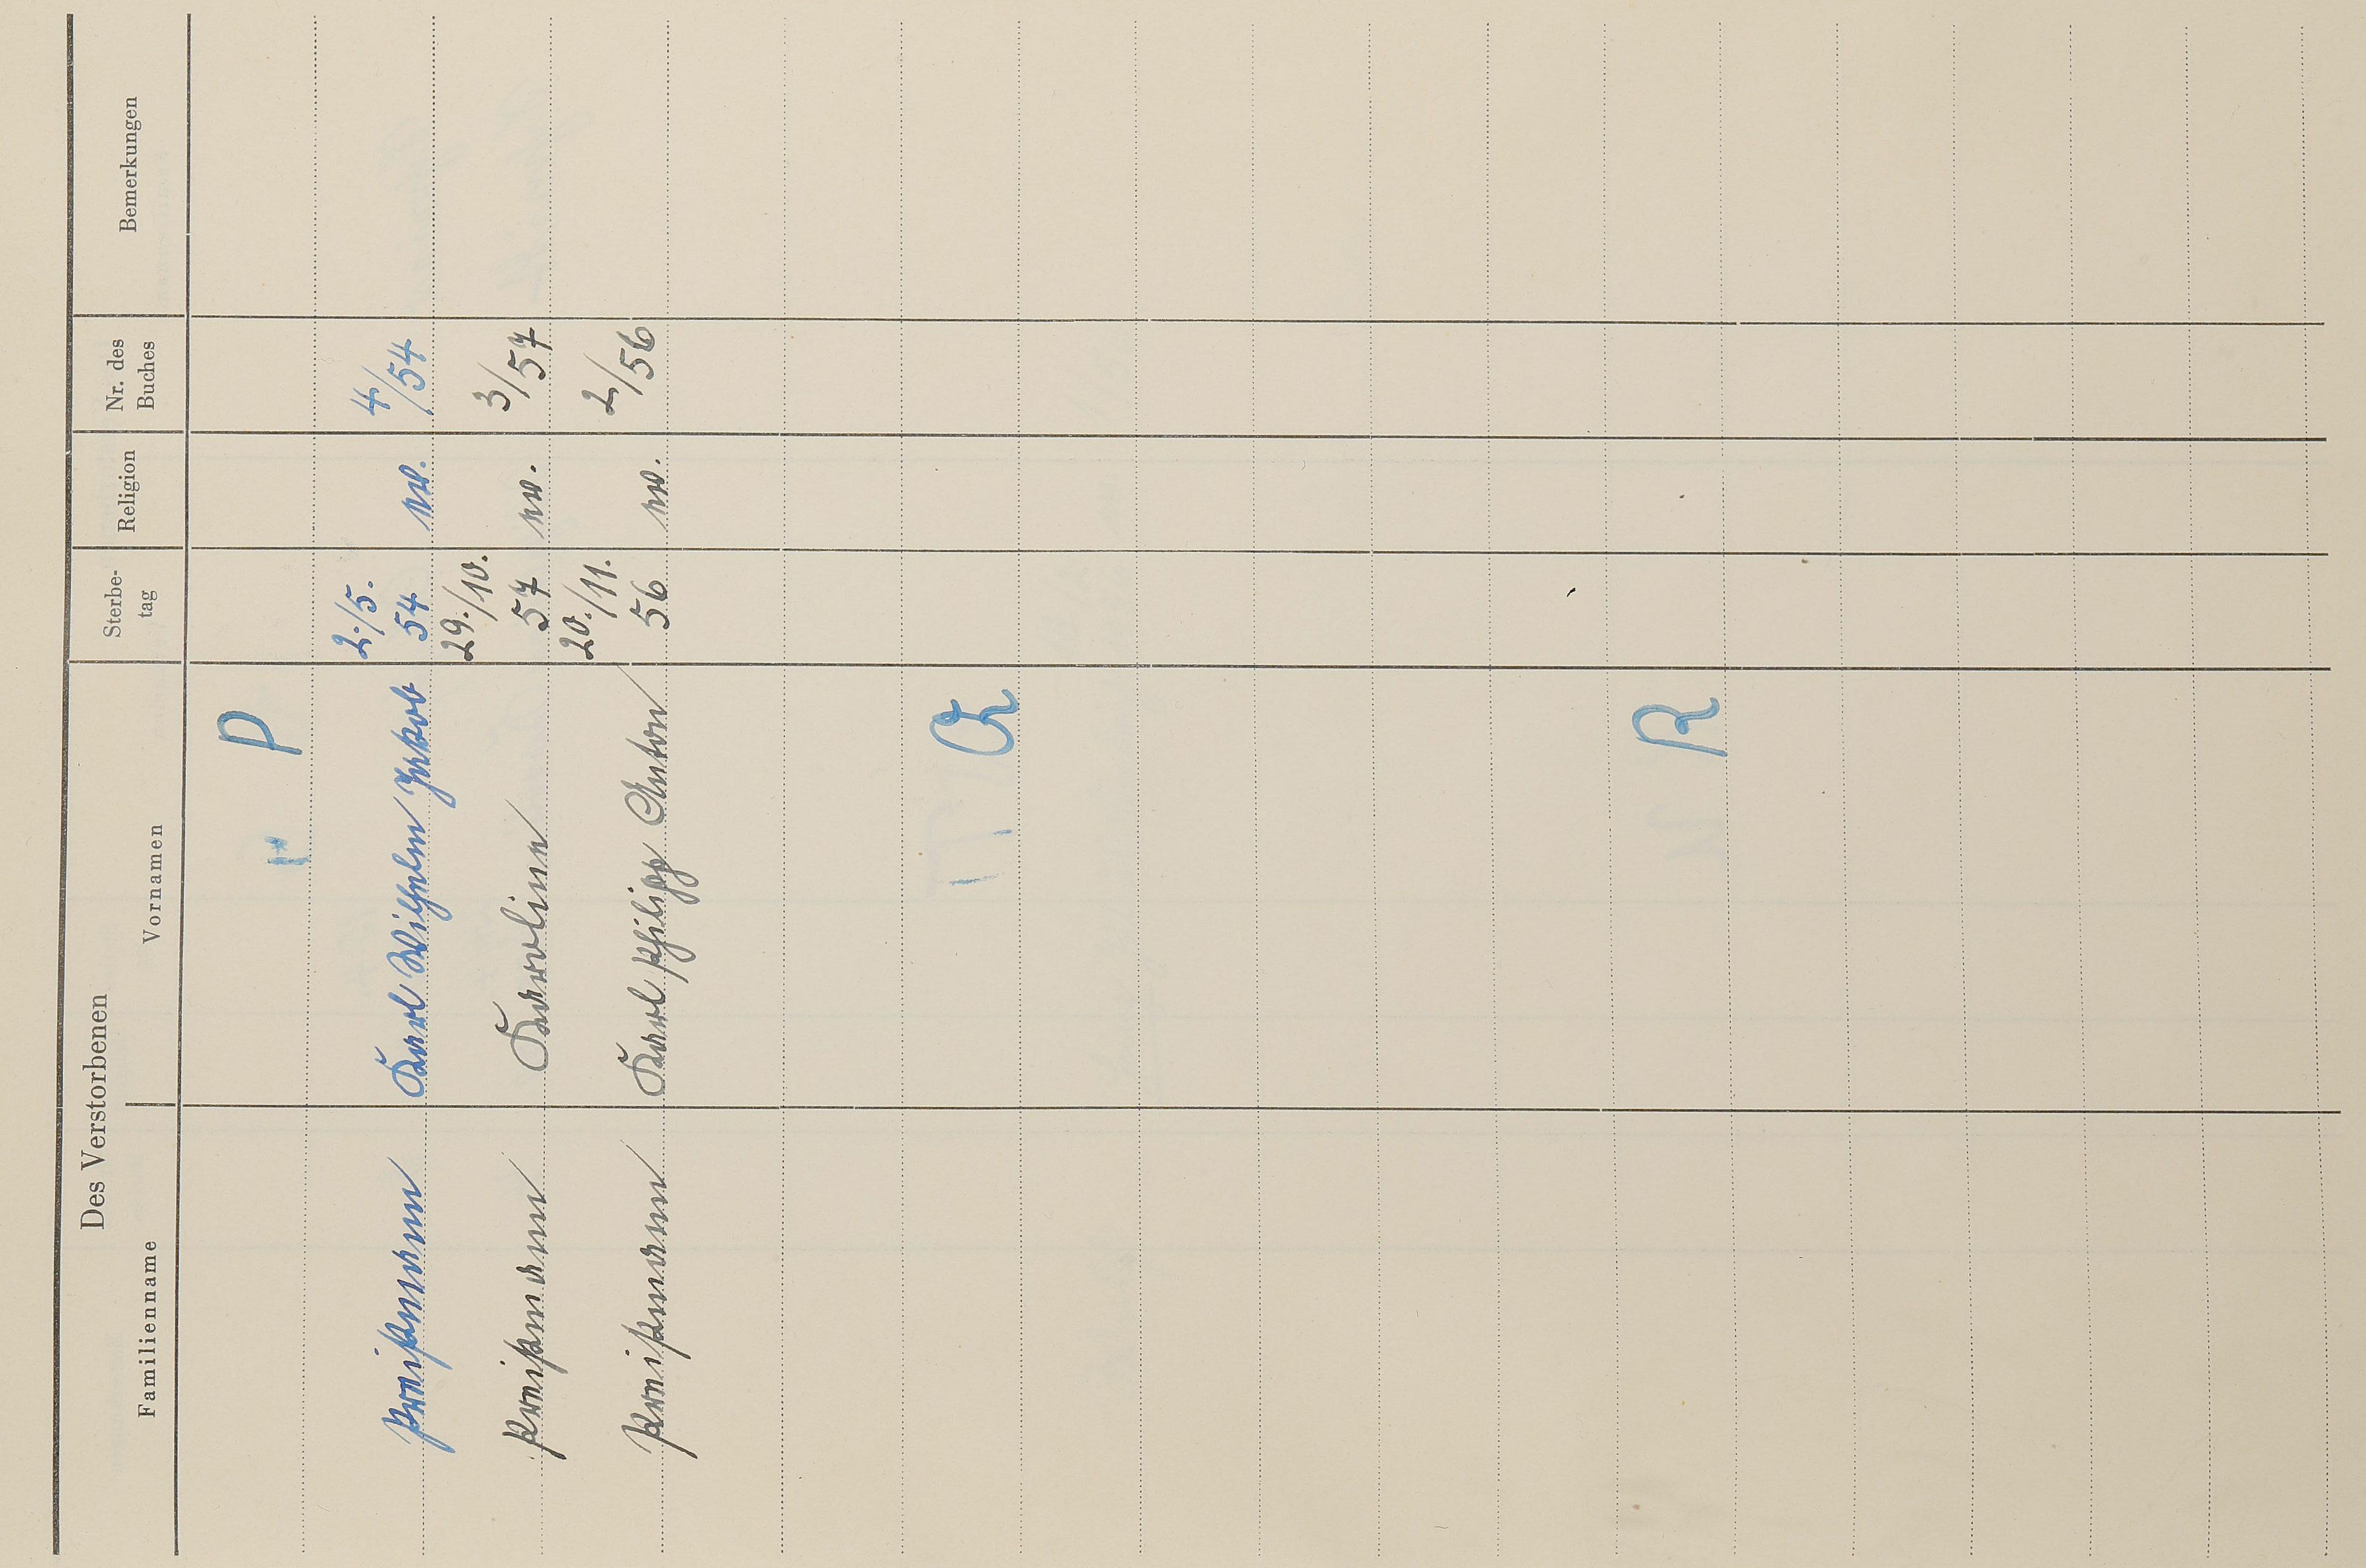 Des Verstorbenen
Familienname Vornamen Sterbe-tag Religion Nr. des Buches Bemerkungen
P
Preißmann Karl Wilhelm Jakob 2./5. 54 ev. 4/54
Preißmann Karoline 29./10. 57 ev. 3/57
Preißmann Karl Philipp Anton 20./11. 56 ev. 2/56
Q
R